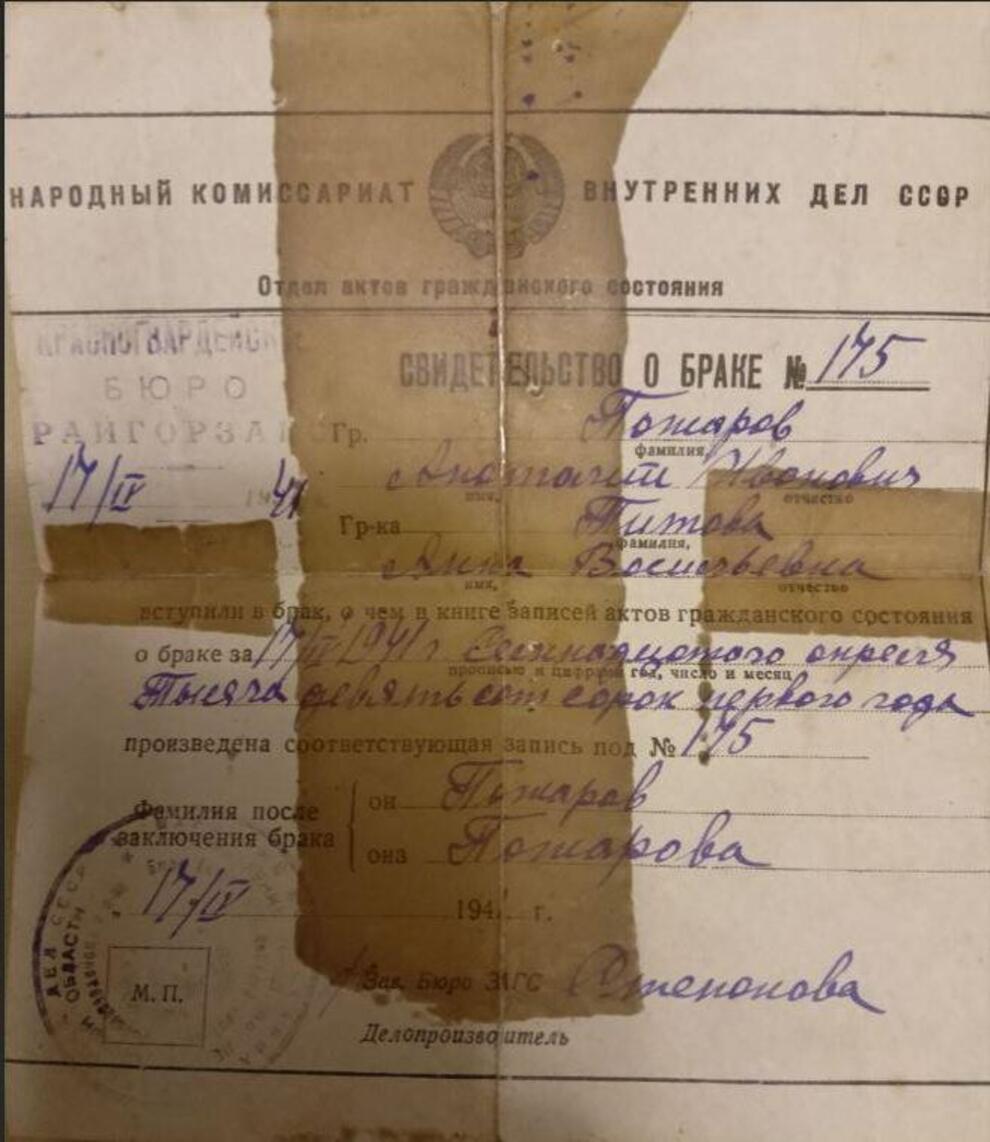 НАРОДНЫЙ КОМИССАРИАТ ВНУТРЕННИХ ДЕЛ СССР
Отдел актов гражданского состояния
КРАСНОГВАРДЕЙСК
БЮРО
РАЙГОРЗА
17/IV 1941
СВИДЕТЕЛЬСТВО О БРАКЕ № 175
Гр. Пожаров
фамилия,
Анатолий Иванович
имя, отчество
Гр-ка Титова
фамилия,
Анна Васильевна
имя, отчество
вступили в брак, о чем в книге записей актов гражданского состояния
о браке за 17/IV 1941 г Семнадцатого апреля
прописью и цифрами год, число и месяц
Тысяча девятьсот сорок первого года
произведена соответствующая запись под № 175
Фамилия после заключения брака
он Пожаров
она Пожарова
17/IV 1941 г.
ДЕЛ СССР
ОБЛАСТИ
М. П.
Зав. Бюро ЗАГС Степанова
Делопроизводитель